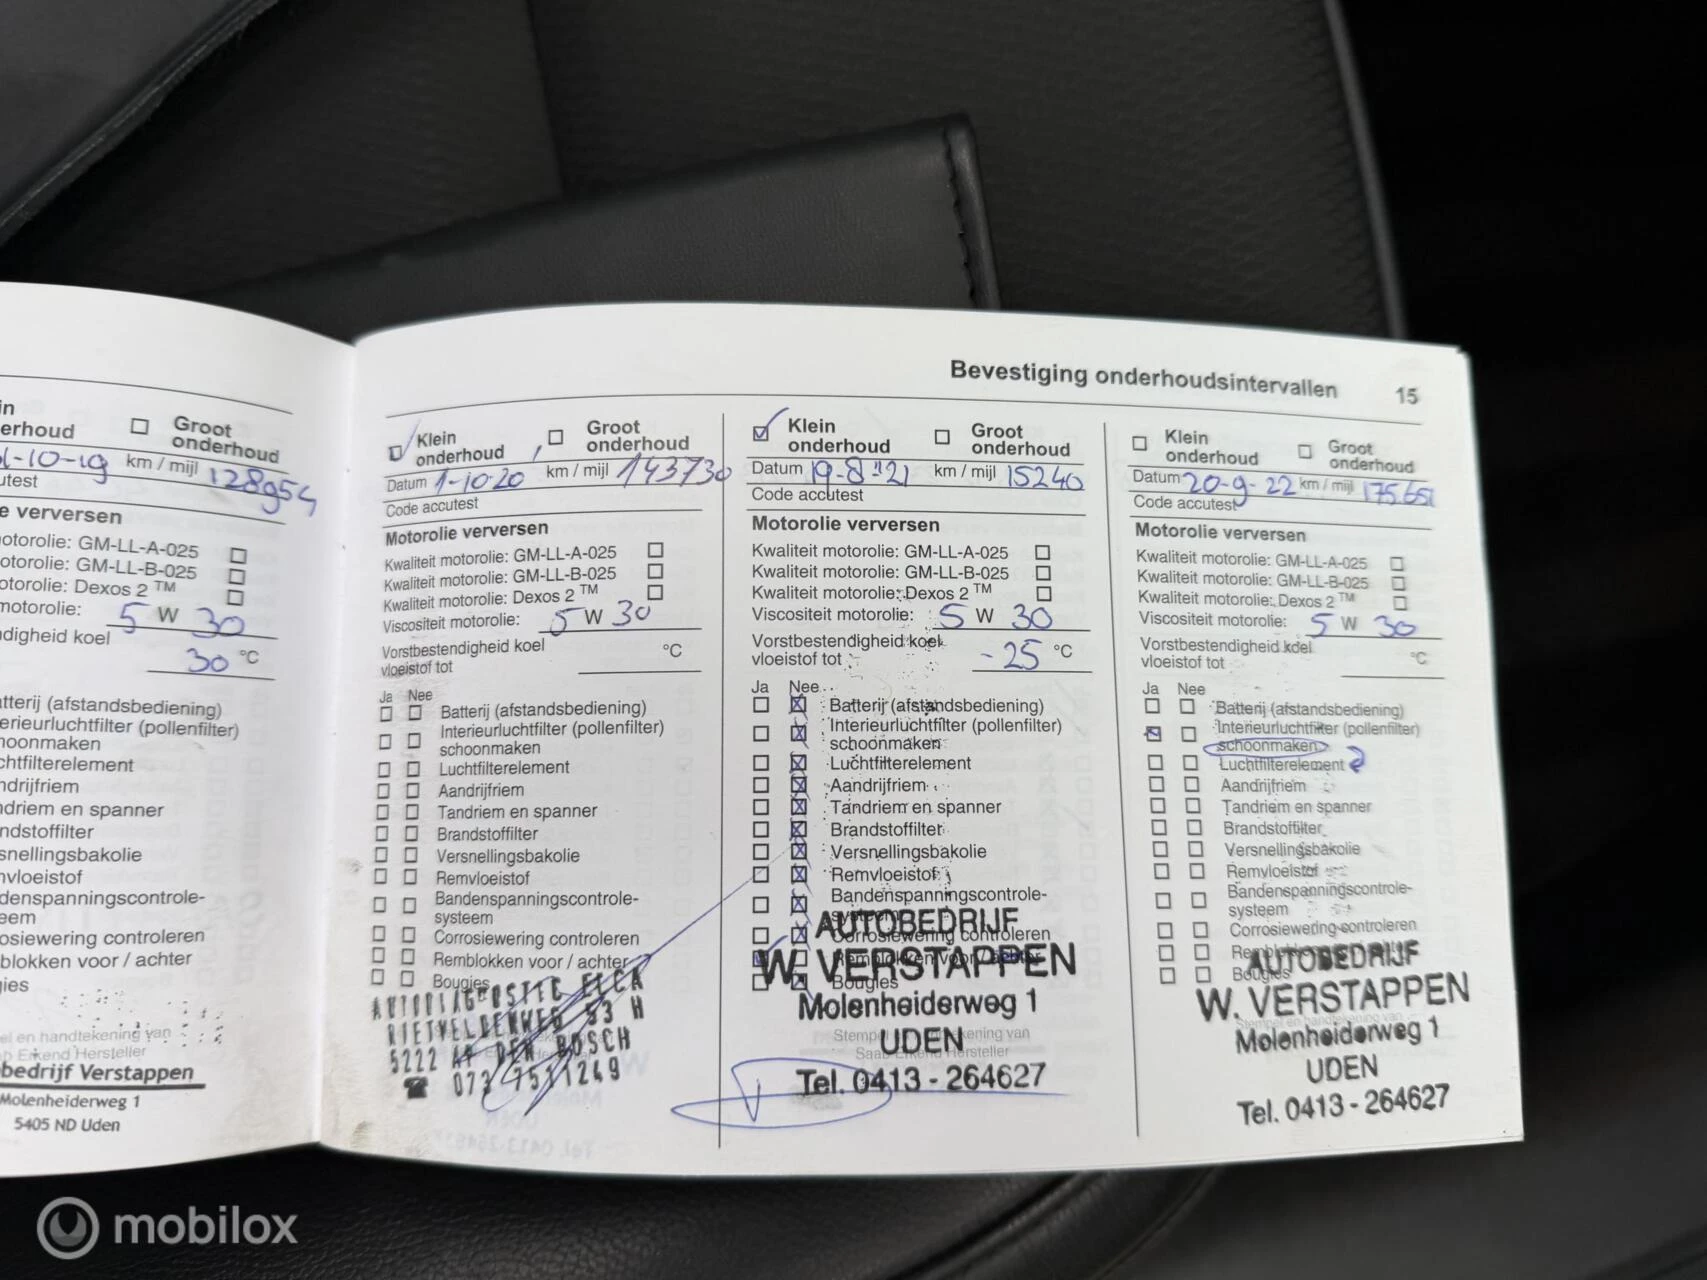 Bevestiging onderhoudsintervallen 15
in
erhoud
Groot
onderhoud
1-10-19 km / mijl 128954
utest
ie verversen
otorolie: GM-LL-A-025
otorolie: GM-LL-B-025
otorolie: Dexos 2 ™
motorolie: 5 W 30
ndigheid koel
30 °C
atterij (afstandsbediening)
erieurluchtfilter (pollenfilter)
hoonmaken
chtfilterelement
ndrijfriem
ndriem en spanner
ndstoffilter
snellingsbakolie
mvloeistof
ndenspanningscontrole-
eem
osiewering controleren
blokken voor / achter
gies
el en handtekening van
b Erkend Hersteller
bedrijf Verstappen
Molenheiderweg 1
5405 ND Uden
Klein
onderhoud
Groot
onderhoud
Datum 1-10-20 km / mijl 143730
Code accutest
Motorolie verversen
Kwaliteit motorolie: GM-LL-A-025
Kwaliteit motorolie: GM-LL-B-025
Kwaliteit motorolie: Dexos 2 ™
Viscositeit motorolie: 5 W 30
Vorstbestendigheid koel
vloeistof tot °C
Ja Nee
Batterij (afstandsbediening)
Interieurluchtfilter (pollenfilter)
schoonmaken
Luchtfilterelement
Aandrijfriem
Tandriem en spanner
Brandstoffilter
Versnellingsbakolie
Remvloeistof
Bandenspanningscontrole-
systeem
Corrosiewering controleren
Remblokken voor / achter
Bougies
AUTODIAGNOSTIC ELCA
RIETVELDENWEG 53 H
5222 AP DEN BOSCH
073 7511249
Klein
onderhoud
Groot
onderhoud
Datum 19-8-'21 km / mijl 15240
Code accutest
Motorolie verversen
Kwaliteit motorolie: GM-LL-A-025
Kwaliteit motorolie: GM-LL-B-025
Kwaliteit motorolie: Dexos 2 ™
Viscositeit motorolie: 5 W 30
Vorstbestendigheid koel
vloeistof tot -25 °C
Ja Nee
Batterij (afstandsbediening)
Interieurluchtfilter (pollenfilter)
schoonmaken
Luchtfilterelement
Aandrijfriem
Tandriem en spanner
Brandstoffilter
Versnellingsbakolie
Remvloeistof
Bandenspanningscontrole-
systeem
Corrosiewering controleren
Remblokken voor / achter
Bougies
Stempel en handtekening van
Saab Erkend Hersteller
AUTOBEDRIJF
W. VERSTAPPEN
Molenheiderweg 1
UDEN
Tel. 0413 - 264627
Klein
onderhoud
Groot
onderhoud
Datum 20-9-22 km / mijl 175.651
Code accutest
Motorolie verversen
Kwaliteit motorolie: GM-LL-A-025
Kwaliteit motorolie: GM-LL-B-025
Kwaliteit motorolie: Dexos 2 ™
Viscositeit motorolie: 5 W 30
Vorstbestendigheid koel
vloeistof tot °C
Ja Nee
Batterij (afstandsbediening)
Interieurluchtfilter (pollenfilter)
schoonmaken
Luchtfilterelement
Aandrijfriem
Tandriem en spanner
Brandstoffilter
Versnellingsbakolie
Remvloeistof
Bandenspanningscontrole-
systeem
Corrosiewering controleren
Bougies
Stempel en handtekening van
AUTOBEDRIJF
W. VERSTAPPEN
Molenheiderweg 1
UDEN
Tel. 0413 - 264627
mobilox